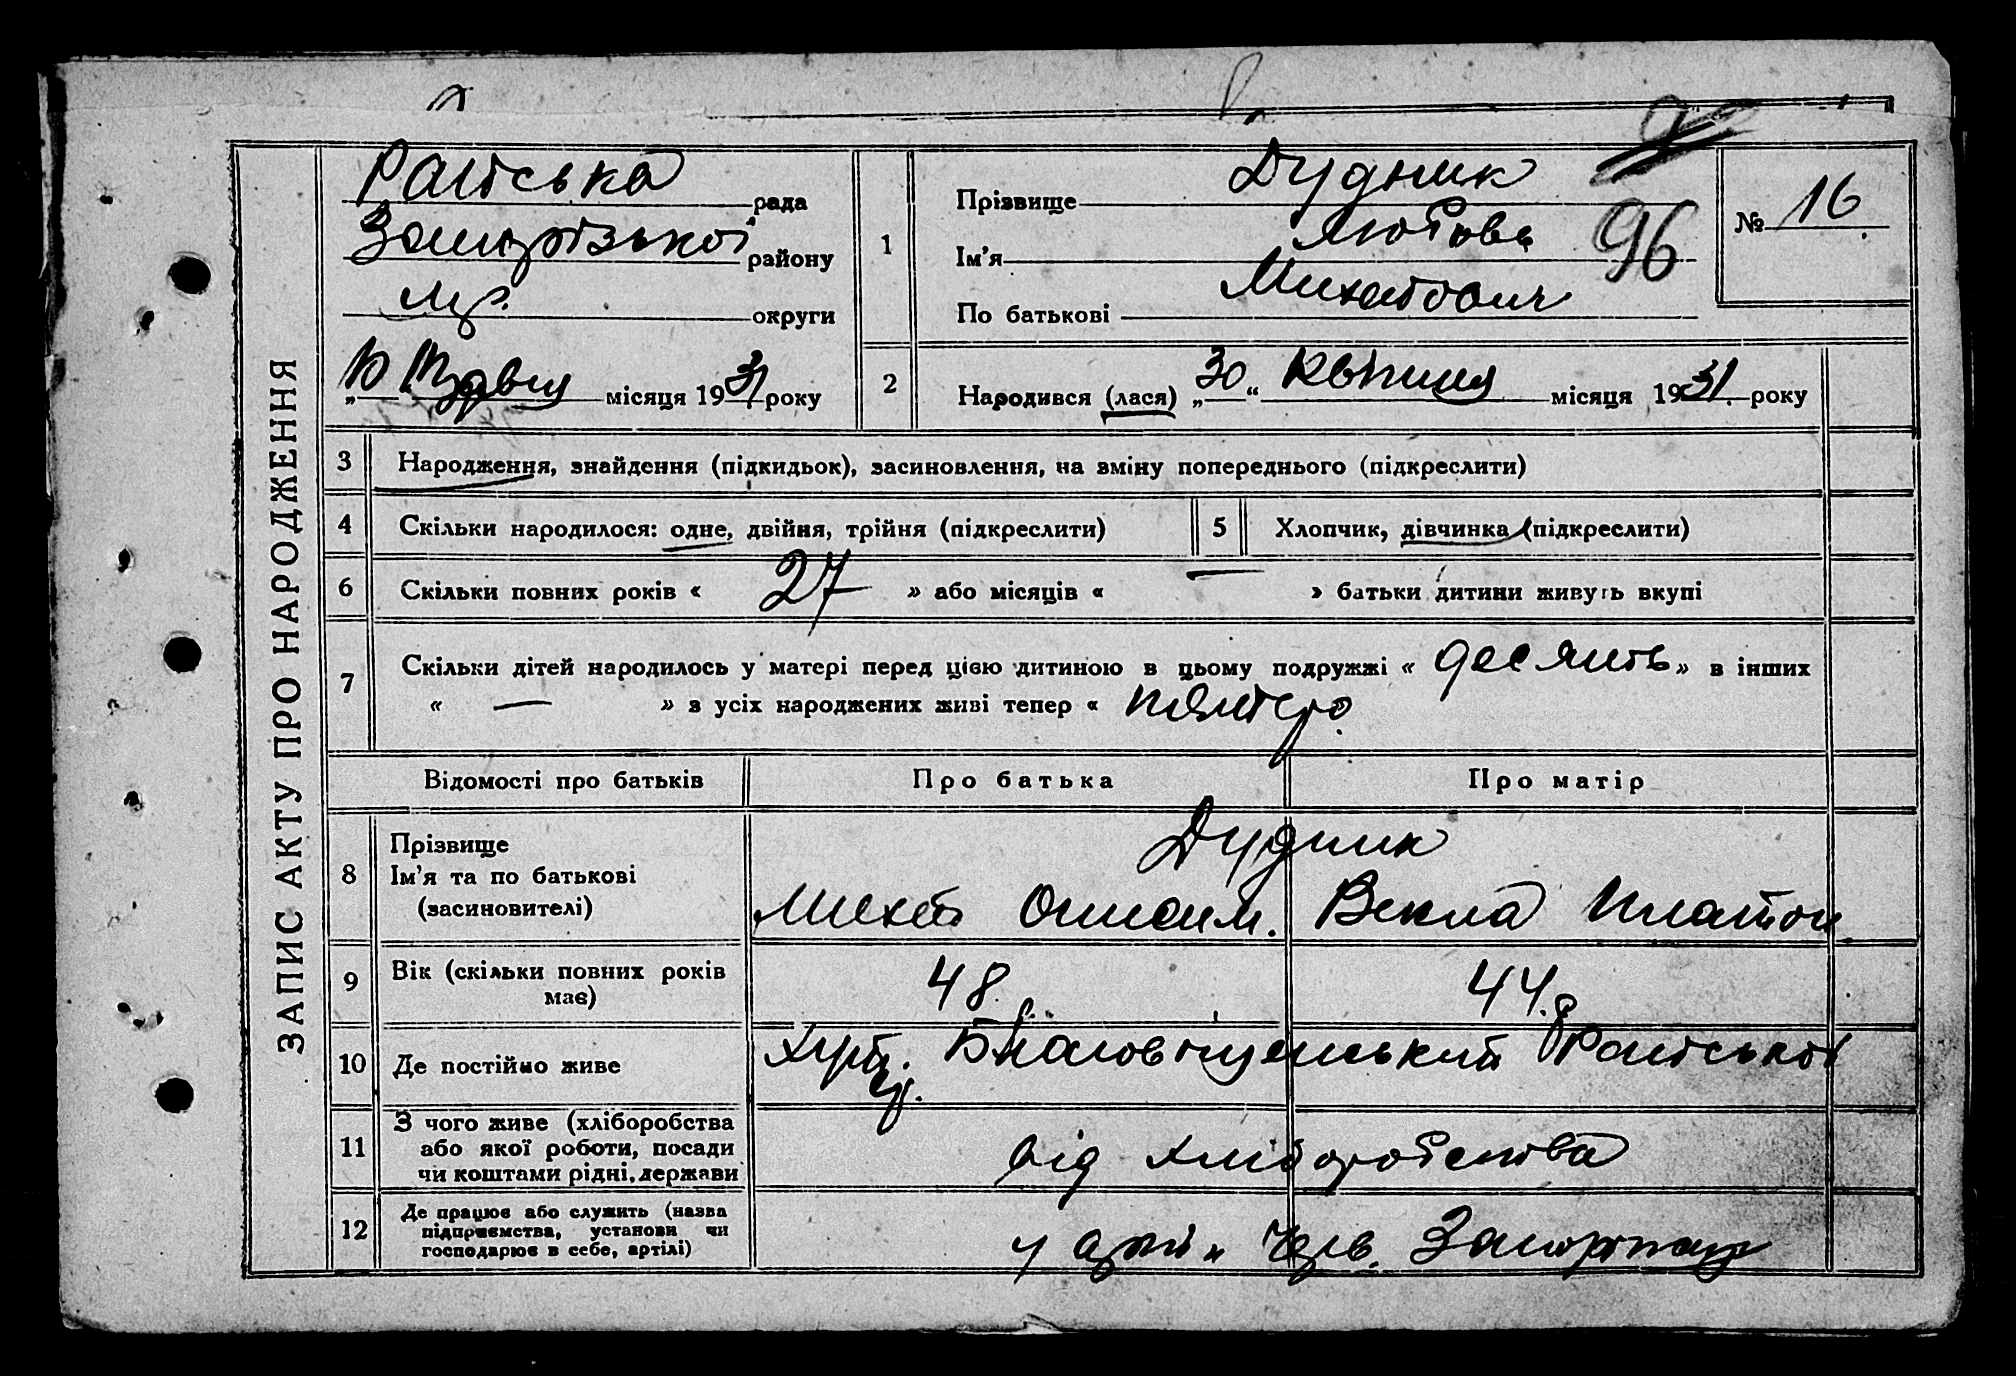 ЗАПИС АКТУ ПРО НАРОДЖЕННЯ
Раїська рада
Запорізької району
округи
„10 Травня місяця 1931 року
1
Прізвище Дудник
Ім'я Любовь
96
По батькові Михайлович
№ 16
2
Народився (лася) „30“ Квітня місяця 1931. року
3 Народження, знайдення (підкидьок), засиновлення, на зміну попереднього (підкреслити)
4 Скільки народилося: одне, двійня, трійня (підкреслити)
5 Хлопчик, дівчинка (підкреслити)
6 Скільки повних років « 27 » або місяців « — » батьки дитини живуть вкупі
7 Скільки дітей народилось у матері перед цією дитиною в цьому подружжі « десять » в інших
« — » з усіх народжених живі тепер « пятеро
Відомості про батьків Про батька Про матір
8 Прізвище
Ім'я та по батькові
(засиновителі)
Дудник
Михай Онисим. Векла Платон
9 Вік (скільки повних років
має)
48. 44.
10 Де постійно живе
Благовіщенський Раїської
11 З чого живе (хліборобства
або якої роботи, посади
чи коштами рідні, держави
від хліборобства
12 Де працює або служить (назва
підприємства, установи чи
господарює в себе, артілі)
у Черв.